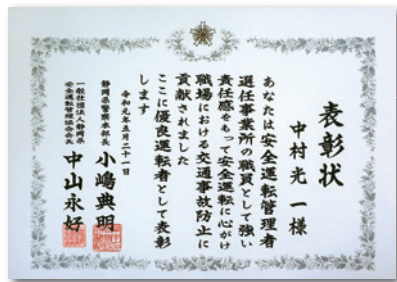 表彰状
中村光一様
あなたは安全運転管理者
選任事業所の職員として強い
責任感をもって安全運転に心がけ
職場における交通事故防止に
貢献されました
ここに優良運転者として表彰
します
令和元年五月二十一日
静岡県警察本部長 小嶋典明
一般社団法人静岡県
安全運転管理協会会長 中山永好